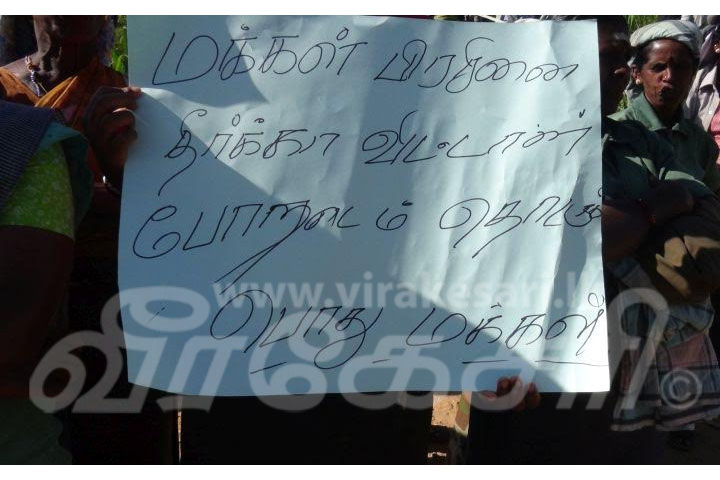 மக்கள் பிரசினை
தீர்க்கா விட்டால்
போறடடம் தொடரு
www.virakesari.l
பொது மக்கள்
வீரகேசரி ©